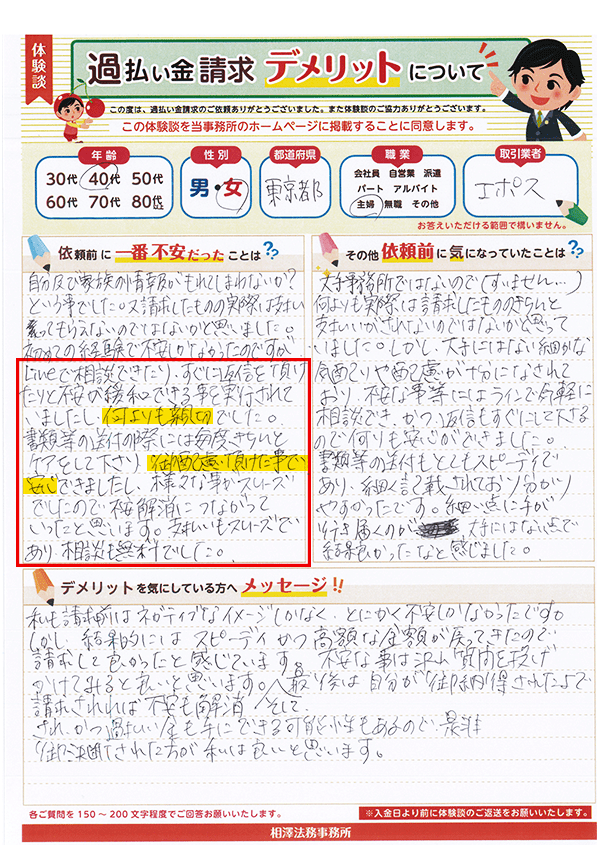 体験談
過払い金請求 デメリットについて
この度は、過払い金請求のご依頼ありがとうございました。また体験談のご協力ありがとうございます。
この体験談を当事務所のホームページに掲載することに同意します。
年齢
30代 40代 50代
60代 70代 80代以上
性別
男・女
都道府県
東京都
職業
会社員 自営業 派遣
パート アルバイト
主婦 無職 その他
取引業者
エポス
お答えいただける範囲で構いません。
依頼前に一番不安だったことは??
自分及び家族の情報がもれてしまわないか?
という事でした。又請求したものの実際は支払
ってもらえないのではないかと思いました。
初めての経験で不安しかなかったのですが
Lineで相談できたり、すぐに返信を頂け
たりと不安が緩和できる事を実行されて
いましたし、何よりも親切でした。
書類等の送付の際には毎度きちんと
ケアをして下さり、御配慮頂けた事で
安心できましたし、様々な事がスムーズ
でしたので不安解消につながって
いったと思います。支払いもスムーズで
あり、相談も無料でした。
その他依頼前に気になっていたことは?
大手事務所ではないので(すいません…)
何よりも実際は請求したもののきちんと
支払いがされないのではないかと思って
いました。しかし、大手にはない細かな
気配りや配慮が十分になされて
おり、不安な事等にはラインで気軽に
相談でき、かつ、返信もすぐにして下さる
ので何よりも安心ができました。
書類等の送付もとてもスピーディで
あり、細かく記載されており分かり
やすかったです。細かい点に手が
行き届くのが 大手にはない点で
結果良かったなと感じました。
デメリットを気にしている方へメッセージ!!
私も請求前はネガティブなイメージしかなく、とにかく不安しかなかったです。
しかし、結果的にはスピーディかつ高額な金額が戻ってきたので
請求して良かったと感じています。不安な事は沢山質問を投げ
かけてみると良いと思います。最後は自分が御納得された上で
請求されれば不安も解消 そして
され、かつ過払い金も手にできる可能性もあるので、是非
御決断された方が私は良いと思います。
各ご質問を150～200文字程度でご回答お願いいたします。
※入金日より前に体験談のご返送をお願いいたします。
相澤法務事務所